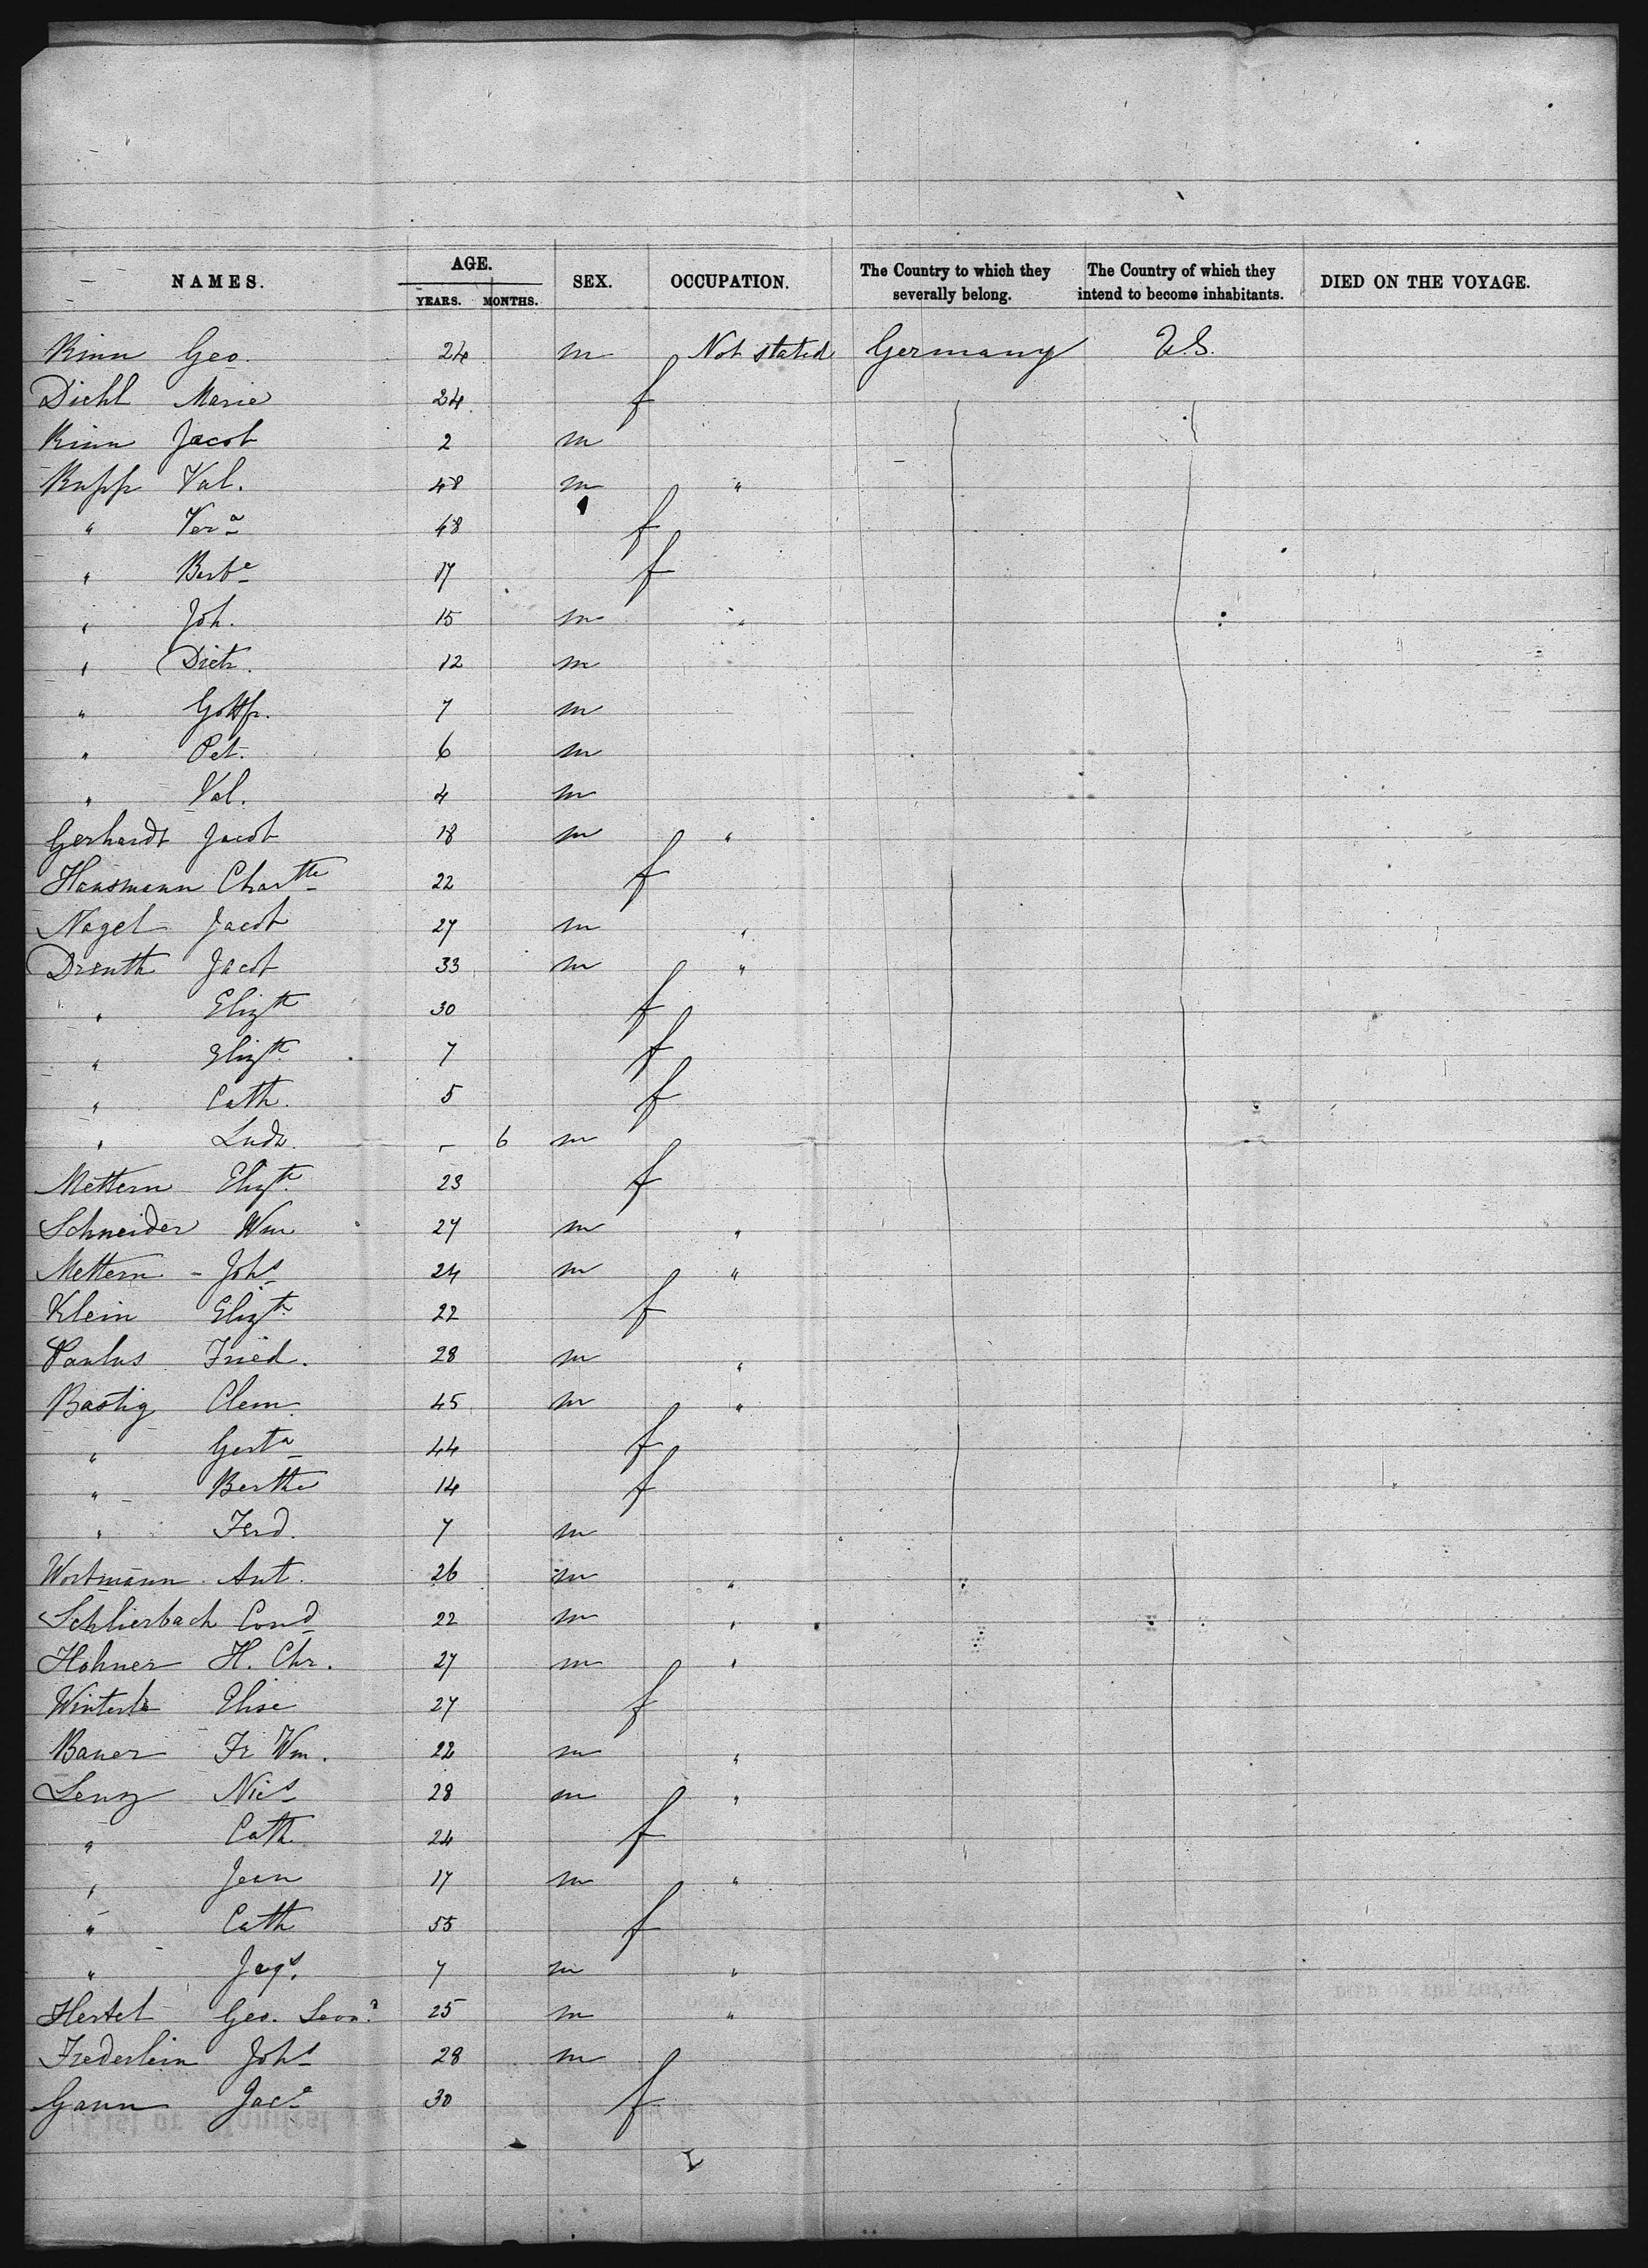 NAMES. AGE. SEX. OCCUPATION. The Country to which they severally belong. The Country of which they intend to become inhabitants. DIED ON THE VOYAGE.
YEARS. MONTHS.
Rinn Geo. 24 m Not stated Germany U.S.
Diehl Marie 24 f
Rinn Jacob 2 m
Rupp Val. 48 m "
" Vera 48 f
" Barbe 17 f
" Joh. 15 m "
" Dietr. 12 m
" Gottfr. 7 m
" Pet. 6 m
" Val. 4 m
Gerhardt Jacob 18 m "
Hausmann Chartte 22 f
Nagel Jacob 27 m "
Drenth Jacob 33 m "
" Elizth 30 f
" Elizth 7 f
" Cath. 5 f
" Ludw. - 6 m
Mettern Elizth 23 f
Schneider Wm 27 m "
Mettern - Johs 24 m "
Klein Elizth 22 f
Paulus Fried. 28 m "
Bastig Clem. 45 m "
" Gerta 44 f
" Berthe 14 f
" Ferd. 7 m
Wortmann Ant. 26 m "
Schlierbach Cond 22 m "
Hohner H. Chr. 27 m "
Winterle Elise 27 f
Bauer Fr Wm. 22 m "
Lenz Nics 28 m "
" Cath 24 f
" Jean 17 m "
" Cath 55 f
" Jaqs. 7 m "
Hertel Geo. Leon? 25 m "
Frederlein Johs 28 m
Gann Jace 30 f